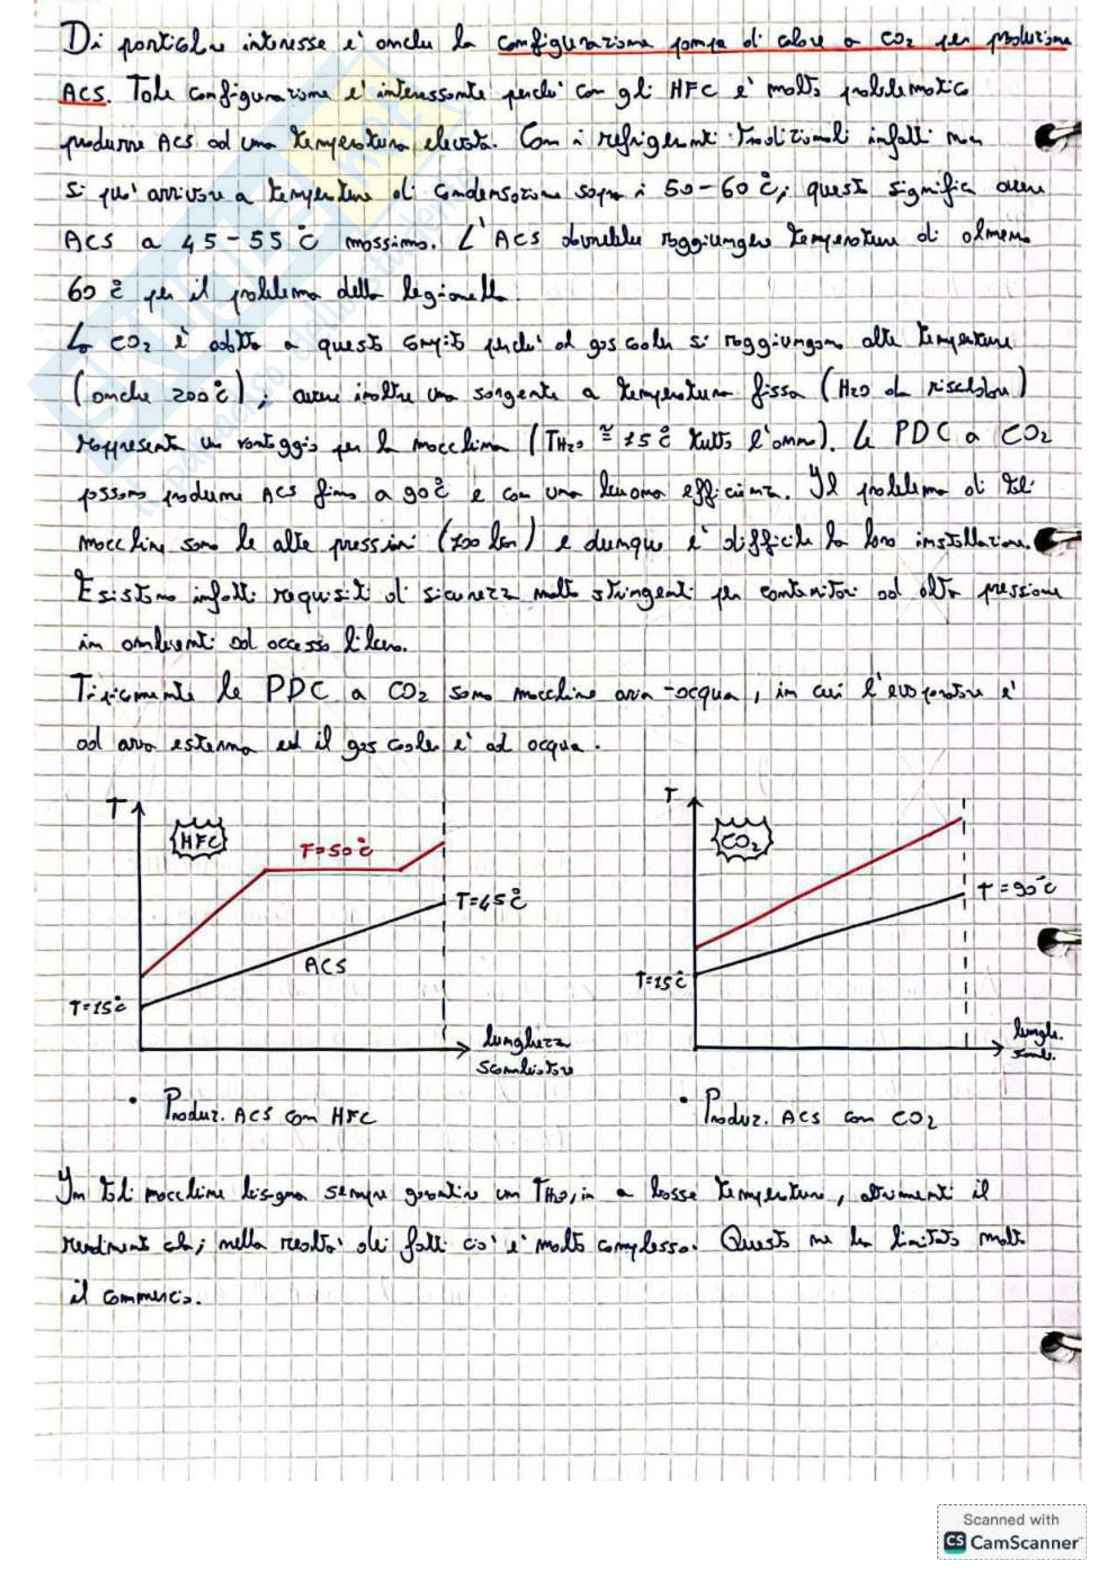 Di particolare interesse e' anche la configurazione pompa di calore a CO2 per produzione
ACS. Tale configurazione e' interessante perche' con gli HFC e' molto problematico
produrre ACS ad una temperatura elevata. Con i refrigeranti tradizionali infatti non
si puo' arrivare a temperature di condensazione sopra i 50-60°C; questo significa avere
ACS a 45-55°C massimo. L'ACS dovrebbe raggiungere temperature di almeno
60°C per il problema della legionella.
La CO2 è adatta a questo compito perche' al gas cooler si raggiungono alte temperature
(anche 200°C); avere inoltre una sorgente a temperatura fissa (H2O da riscaldare)
rappresenta un vantaggio per la macchina (TH2O ≅ 15°C tutto l'anno). Le PDC a CO2
possono produrre ACS fino a 90°C e con una buona efficienza. Il problema di tali
macchine sono le alte pressioni (100 bar) e dunque e' difficile la loro installazione.
Esistono infatti requisiti di sicurezza molto stringenti per contenitori ad alta pressione
in ambienti ad accesso libero.
Tipicamente le PDC a CO2 sono macchine aria-acqua, in cui l'evaporatore e'
ad aria esterna ed il gas cooler e' ad acqua.
T
HFC
T=50°C
T=45°C
ACS
T=15°C
lunghezza
scambiatore
• Produz. ACS con HFC
T
CO2
T=90°C
T=15°C
lungh.
scamb.
• Produz. ACS con CO2
In tali macchine bisogna sempre garantire un TH2O,in a basse temperature, altrimenti il
rendimento cala; nella realta' dei fatti cio' e' molto complesso. Questo ne ha limitato molto
il commercio.
Scanned with
CS CamScanner